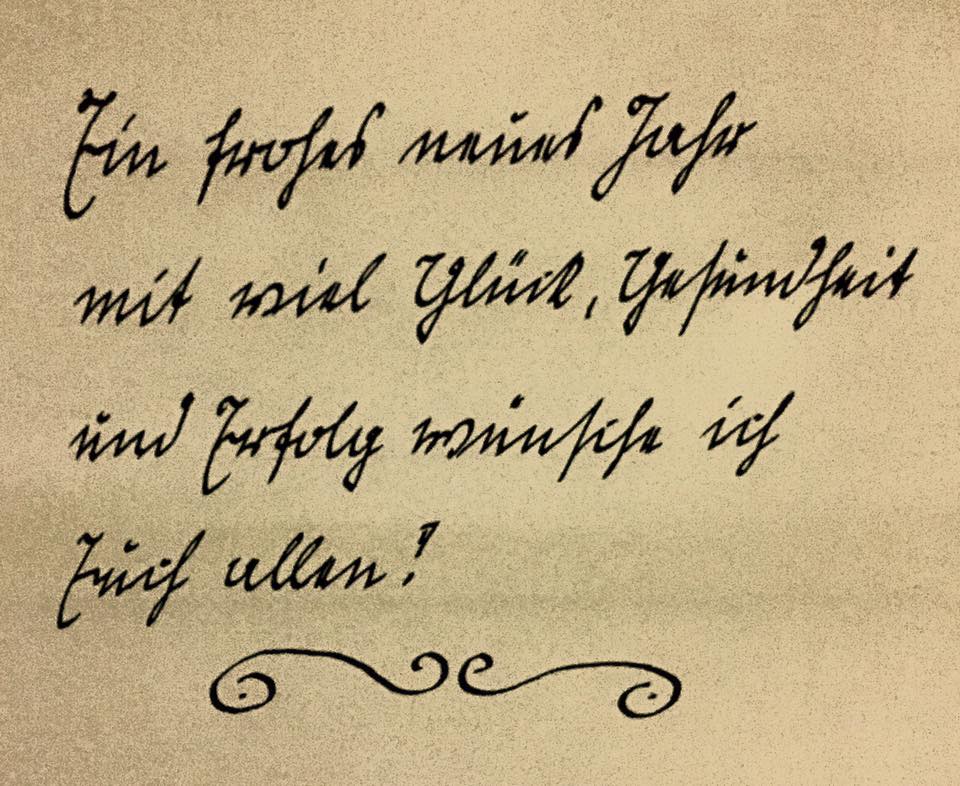 Ein frohes neues Jahr
mit viel Glück, Gesundheit
und Erfolg wünsche ich
Euch allen!